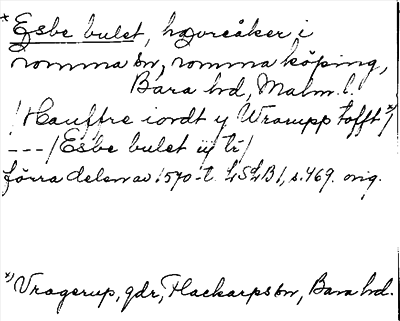 *Esbe bulet, havreåker i
romma sn, romma köping,
Bara hd, Malm. l.
/Hauffre iordt y Wrampp tofft *)/
---/Esbe bulet iij ti/
förra delen av 1570-t. LSLB 1, s. 469. orig.
*) Vragerup, gdr, Flackarps sn, Bara hd.